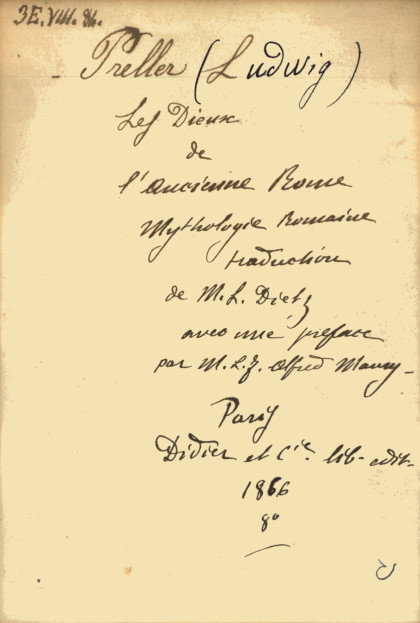 3E. VIII. 84.
- Preller (Ludwig)
Les Dieux
de
l'ancienne Rome
Mythologie Romaine
traduction
de M. L. Dietz
avec une préface
par M. L. F. Alfred Maury -
Paris
Didier et Cie. lib- edit-
1866
8°